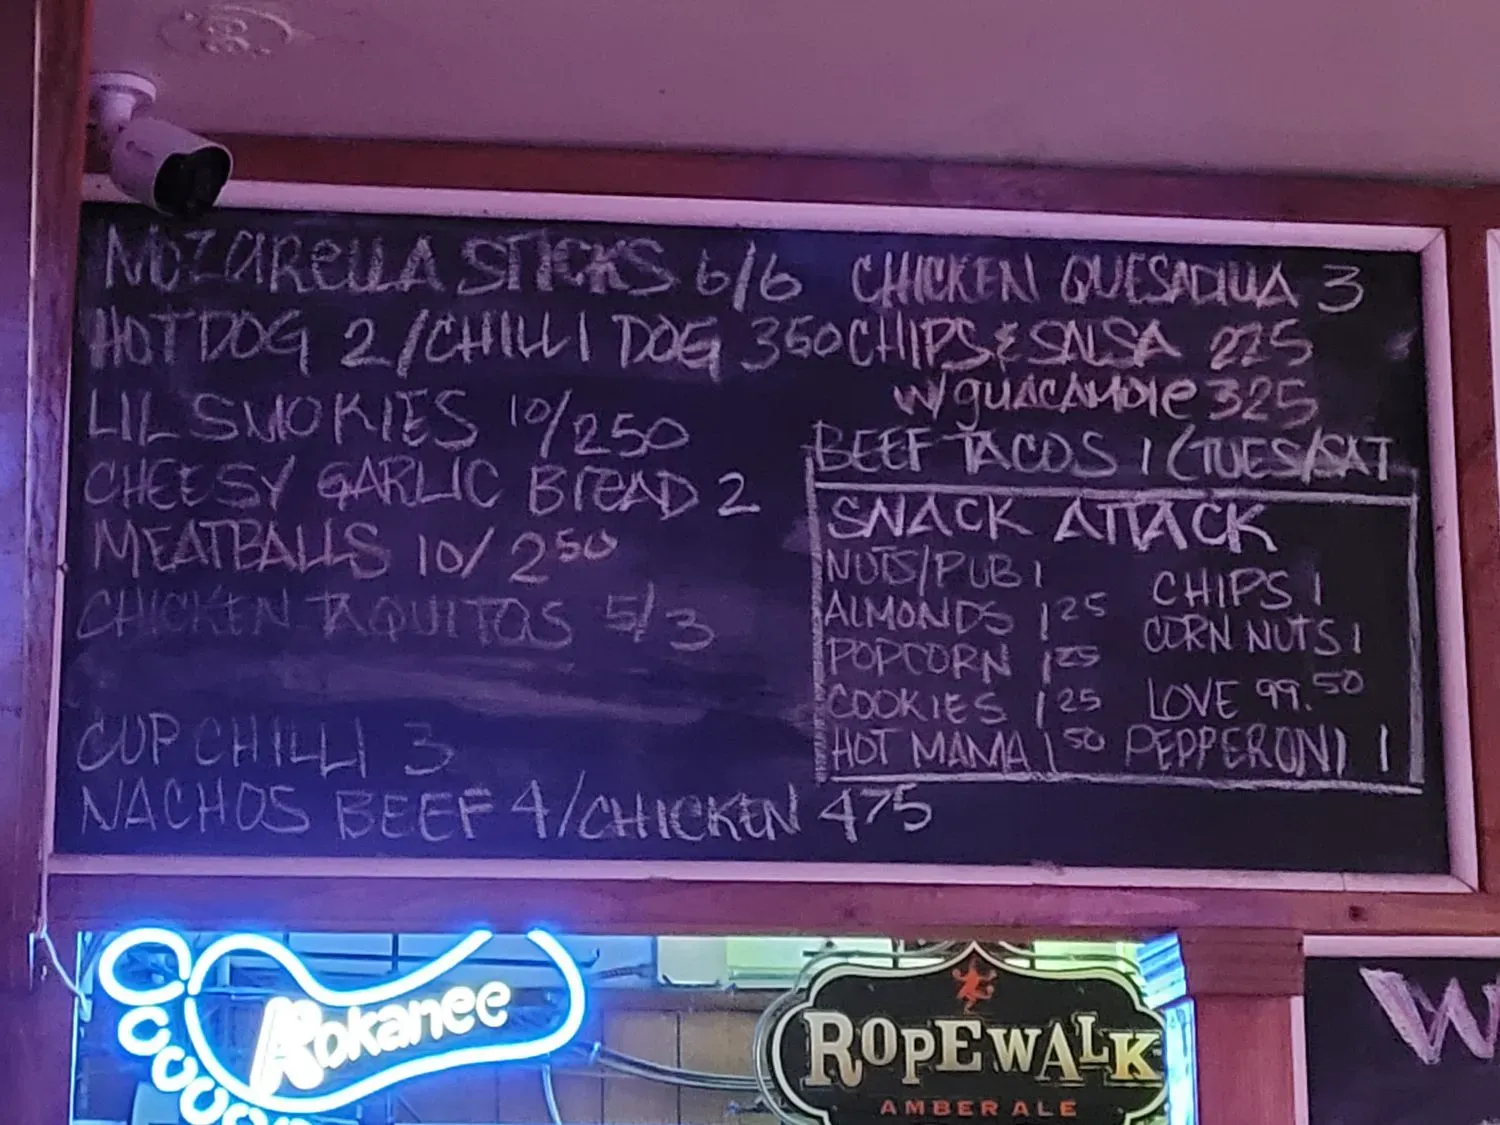 MOZARELLA STICKS 6/6
HOT DOG 2/CHILLI DOG 350
LIL SMOKIES 10/250
CHEESY GARLIC BREAD 2
MEATBALLS 10/250
CHICKEN TAQUITOS 5/3
CUP CHILLI 3
NACHOS BEEF 4/CHICKEN 475
CHICKEN QUESADILLA 3
CHIPS & SALSA 225
W/GUACAMOLE 325
BEEF TACOS 1 (TUES/SAT
SNACK ATTACK
NUTS/PUB 1
ALMONDS 125
POPCORN 125
COOKIES 125
HOT MAMA 150
CHIPS 1
CORN NUTS 1
LOVE 99.50
PEPPERONI 1
Kokanee
ROPEWALK
AMBER ALE
W